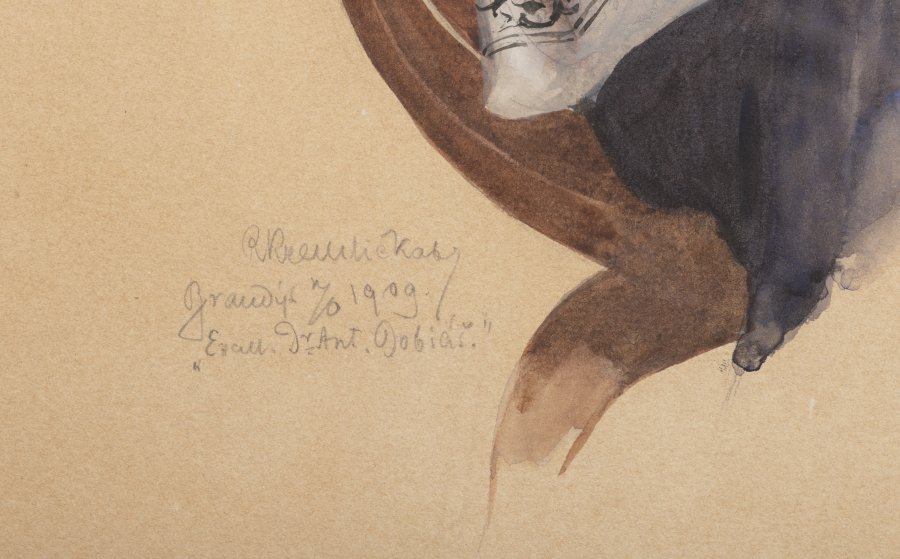 R Kremlička
Brandýs n/O 1909.
"Excell. Dr Ant. Dobiáš."